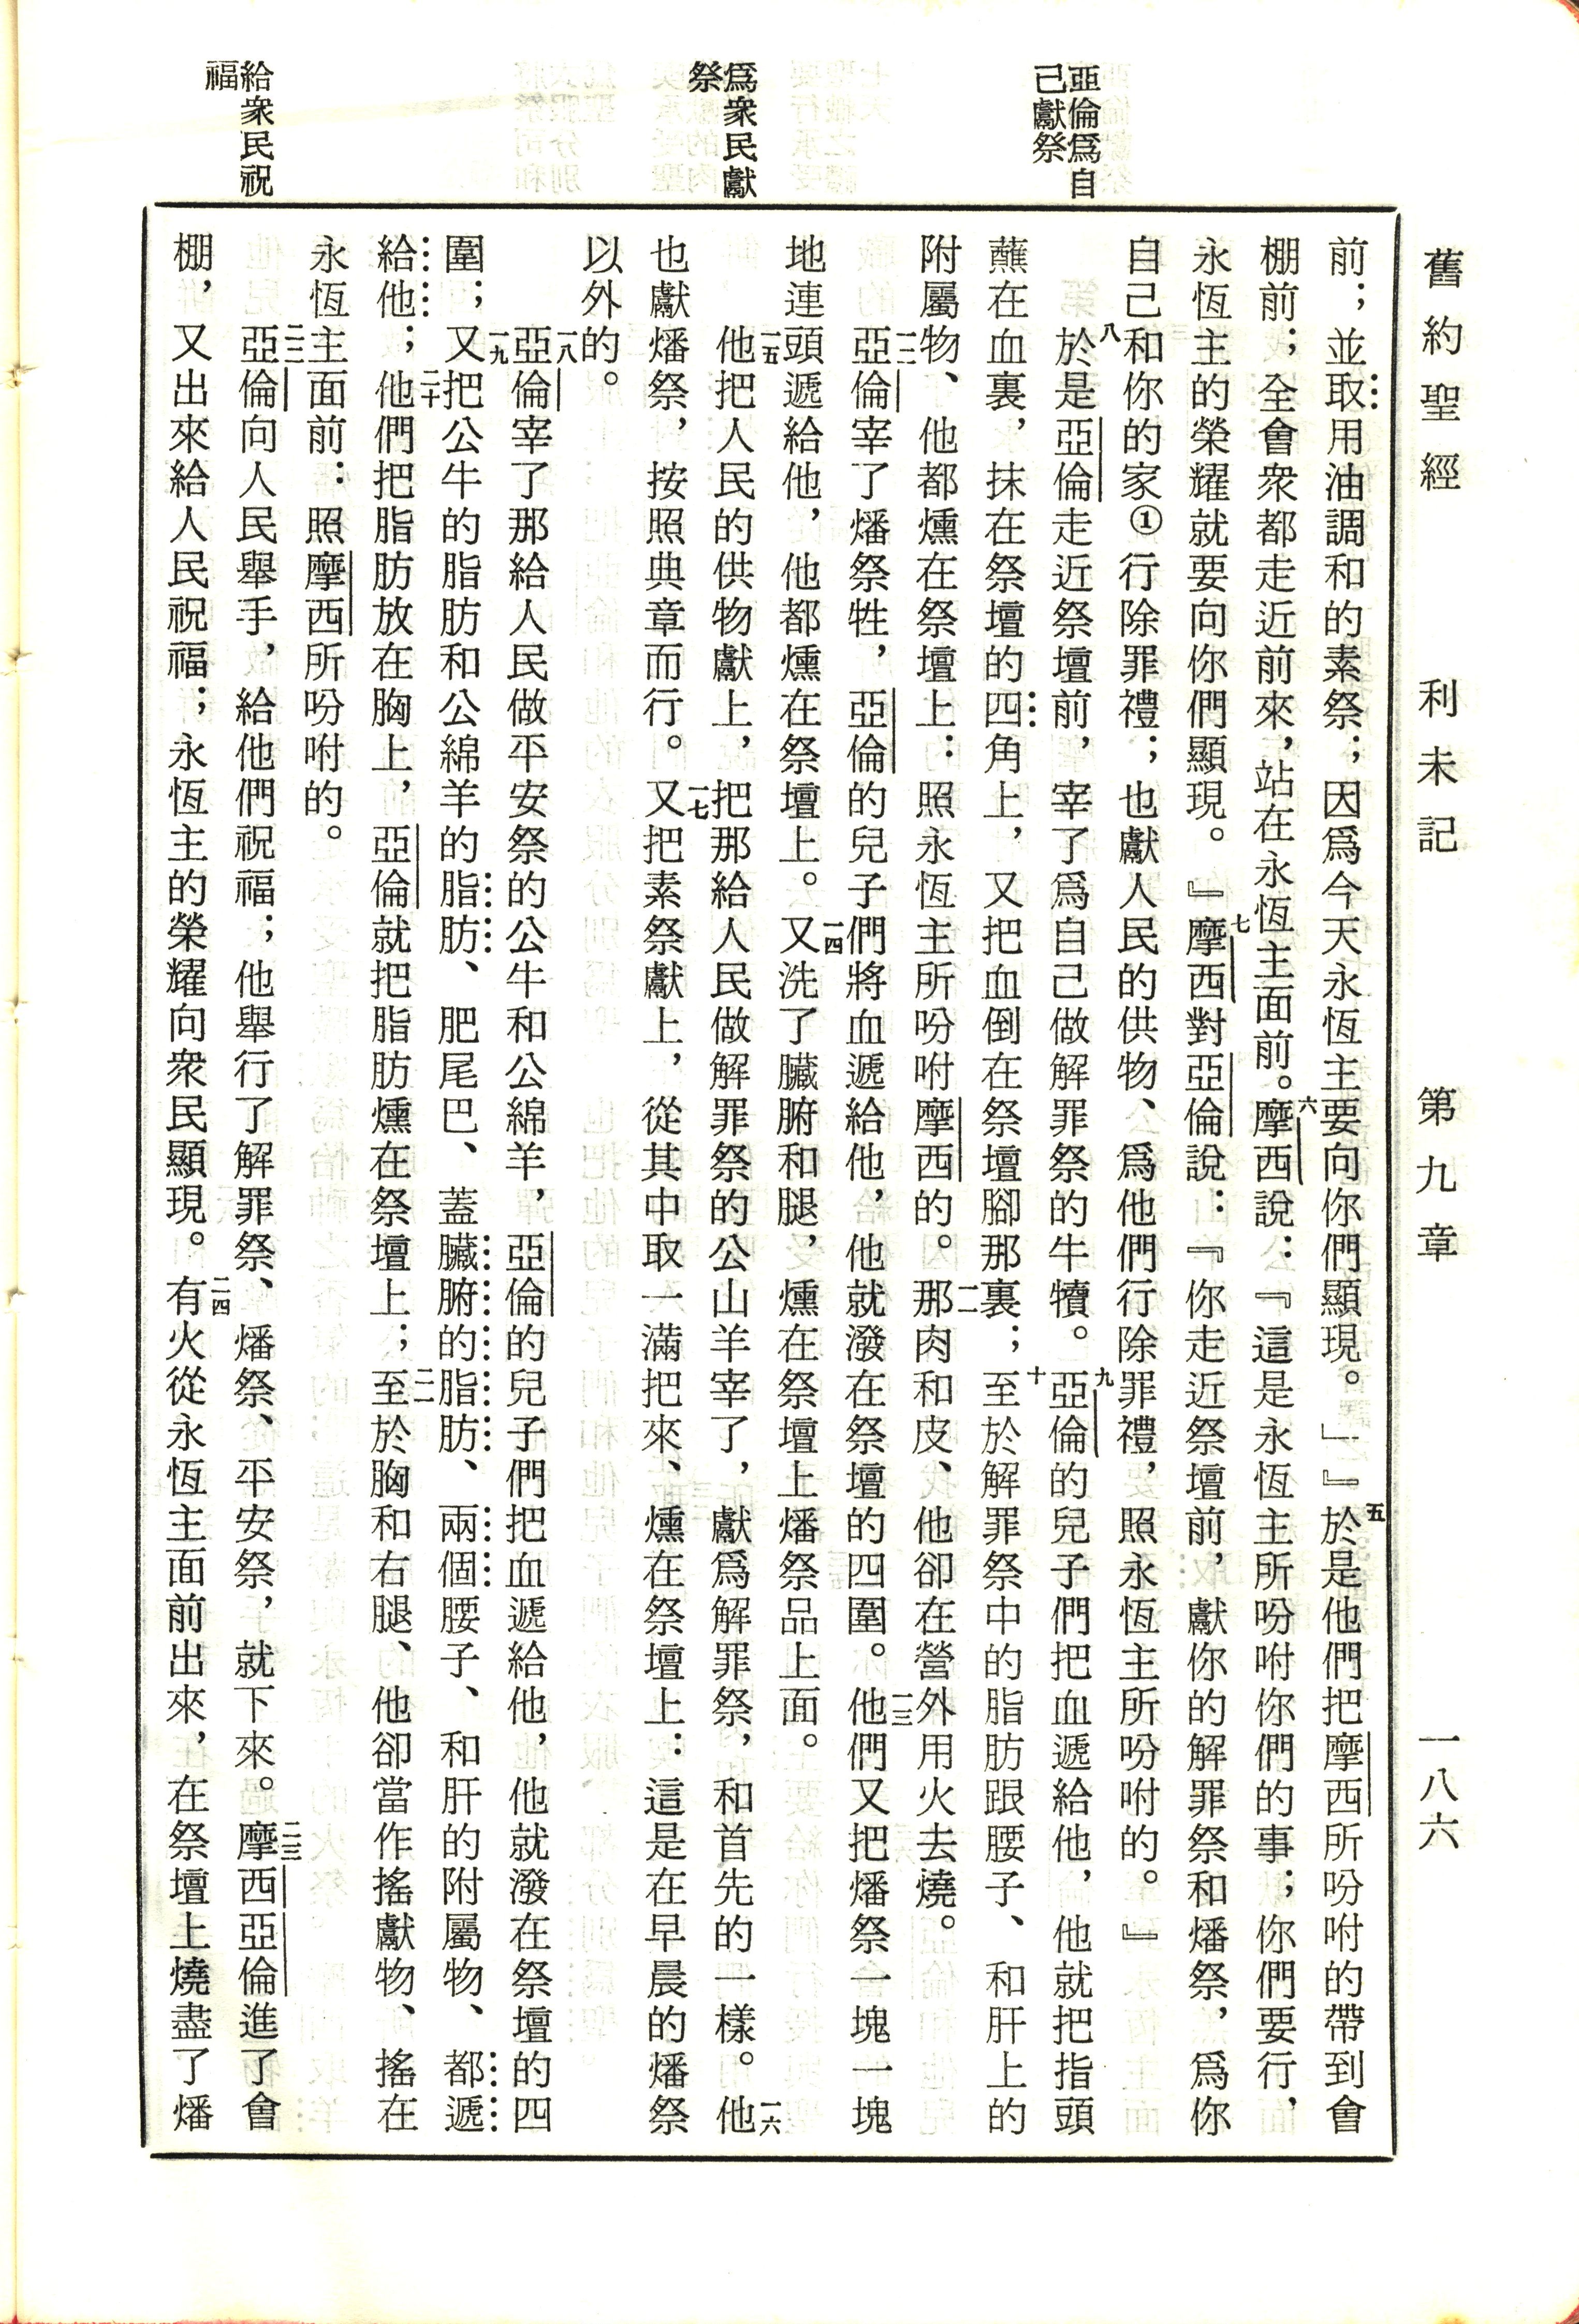 舊約聖經 利未記 第九章 一八六
亞倫爲自
己獻祭
爲衆民獻
祭
給衆民祝
福
前；並取用油調和的素祭；因爲今天永恆主要向你們顯現。」』五於是他們把摩西所吩咐的帶到會
棚前；全會衆都走近前來，站在永恆主面前。六摩西說：『這是永恆主所吩咐你們的事；你們要行，
永恆主的榮耀就要向你們顯現。』七摩西對亞倫說：『你走近祭壇前，獻你的解罪祭和燔祭，爲你
自己和你的家①行除罪禮；也獻人民的供物、爲他們行除罪禮，照永恆主所吩咐的。』
八於是亞倫走近祭壇前，宰了爲自己做解罪祭的牛犢。九亞倫的兒子們把血遞給他，他就把指頭
蘸在血裏，抹在祭壇的四角上，又把血倒在祭壇腳那裏；十至於解罪祭中的脂肪跟腰子、和肝上的
附屬物、他都燻在祭壇上：照永恆主所吩咐摩西的。一一那肉和皮、他卻在營外用火去燒。
一二亞倫宰了燔祭牲，亞倫的兒子們將血遞給他，他就潑在祭壇的四圍。一三他們又把燔祭一塊一塊
地連頭遞給他，他都燻在祭壇上。一四又洗了臟腑和腿，燻在祭壇上燔祭品上面。
一五他把人民的供物獻上，把那給人民做解罪祭的公山羊宰了，獻爲解罪祭，和首先的一樣。一六他
也獻燔祭，按照典章而行。一七又把素祭獻上，從其中取一滿把來、燻在祭壇上：這是在早晨的燔祭
以外的。
一八亞倫宰了那給人民做平安祭的公牛和公綿羊，亞倫的兒子們把血遞給他，他就潑在祭壇的四
圍；一九又把公牛的脂肪和公綿羊的脂肪、肥尾巴、蓋臟腑的脂肪、兩個腰子、和肝的附屬物、都遞
給他；二十他們把脂肪放在胸上，亞倫就把脂肪燻在祭壇上；二一至於胸和右腿、他卻當作搖獻物、搖在
永恆主面前：照摩西所吩咐的。
二二亞倫向人民舉手，給他們祝福；他舉行了解罪祭、燔祭、平安祭，就下來。二三摩西亞倫進了會
棚，又出來給人民祝福；永恆主的榮耀向衆民顯現。二四有火從永恆主面前出來，在祭壇上燒盡了燔